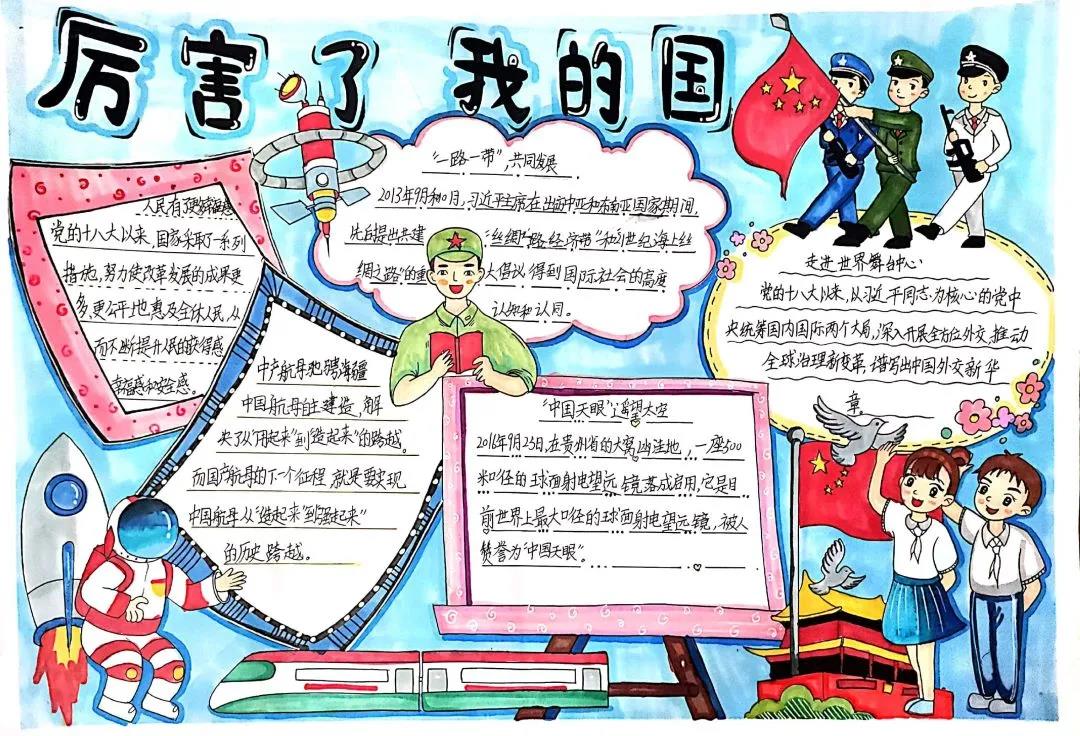 厉害了我的国
人民有了更幸福感
党的十八大以来,国家采取了一系列
措施,努力使改革发展的成果更
多、更公平地惠及全体人民,从
而不断提升人民的获得感
幸福感和安全感。
"一路一带",共同发展
2013年9月和10月,习近平主席在出访中亚和东南亚国家期间,
先后提出共建"丝绸之路经济带"和21世纪海上丝
绸之路"的重大倡议得到国际社会的高度
认知和认同。
走进世界舞台中心
党的十八大以来,以习近平同志为核心的党中
央统筹国内国际两个大局,深入开展全方位外交,推动
全球治理新变革,谱写出中国外交新华
章。
中产航母驰骋海疆
中国航母自主建造,解
决了从"用起来"到"造起来"的跨越。
而国产航母的下个征程,就是要实现
中国航母从"造起来"到"强起来"
的历史跨越。
"中国天眼"遥望太空
2016年9月25日,在贵州省的大窝凼洼地,一座500
米口径的球面射电望远镜落成启用,它是目
前世界上最大口径的球面射电望远镜,被人
赞誉为"中国天眼"。